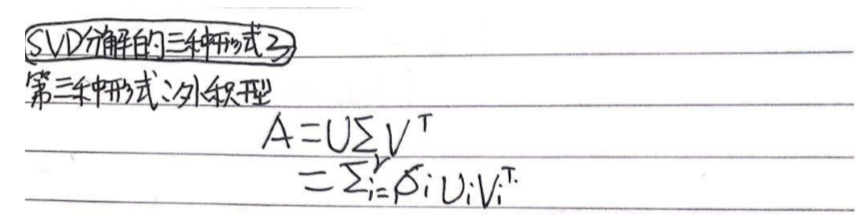 SVD分解的三种形式3
第三种形式:外积型
A=UΣVᵀ
=Σᵢ₌ʳσᵢUᵢVᵢᵀ